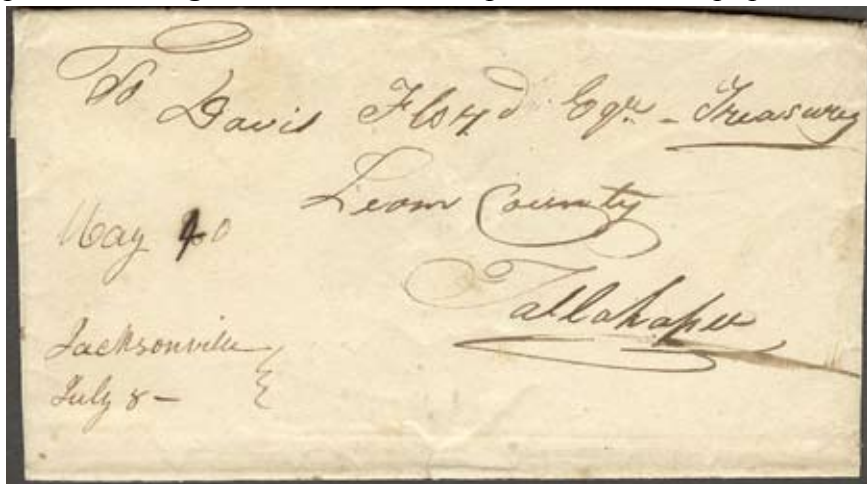 To David Floyd Eqr. - Treasurey
Leon County
Tallahassee
May
Jacksonville
July 8 -